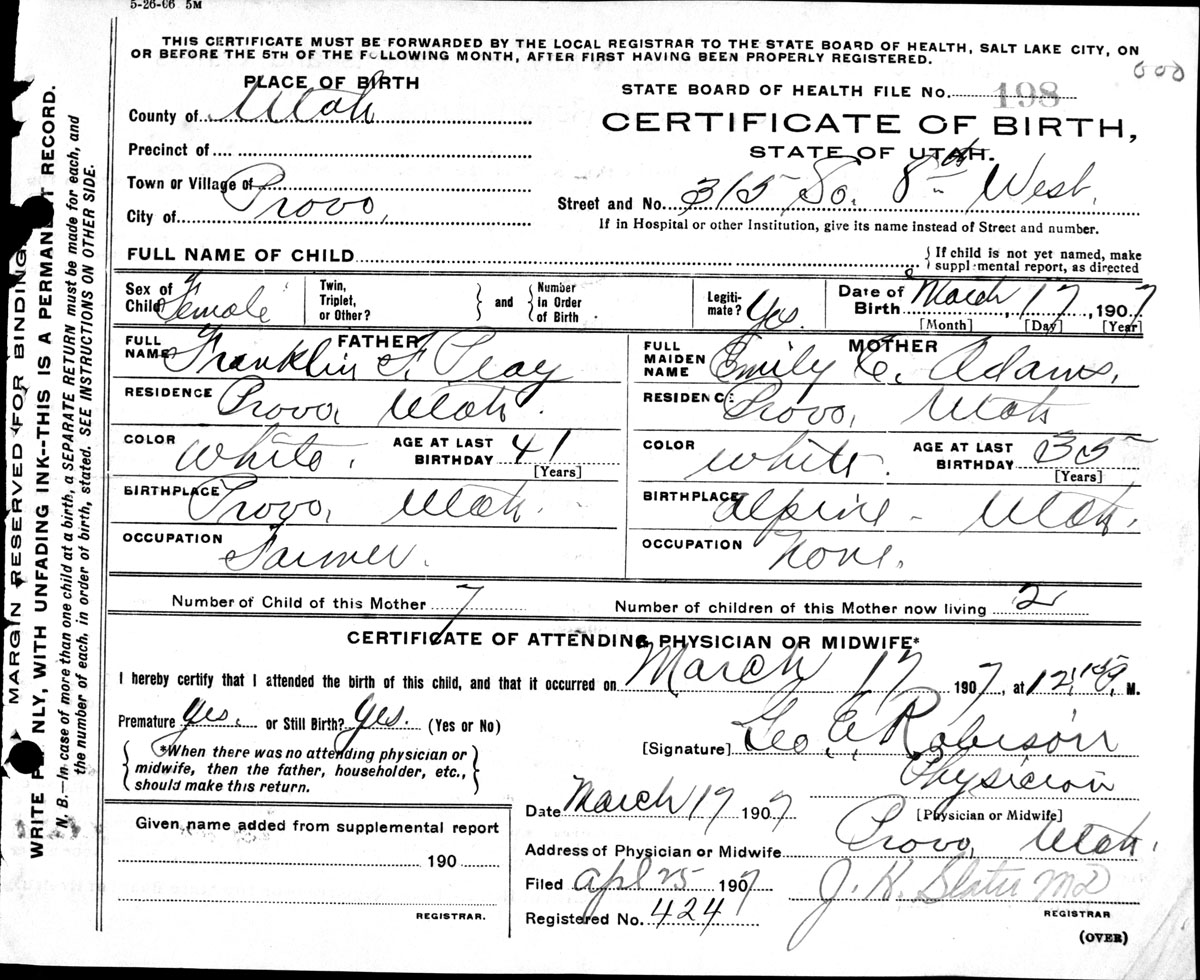 5-26-06 5M
THIS CERTIFICATE MUST BE FORWARDED BY THE LOCAL REGISTRAR TO THE STATE BOARD OF HEALTH, SALT LAKE CITY, ON
OR BEFORE THE 5TH OF THE FOLLOWING MONTH, AFTER FIRST HAVING BEEN PROPERLY REGISTERED.
000
PLACE OF BIRTH
County of Utah
Precinct of
Town or Village of
City of Provo,
STATE BOARD OF HEALTH FILE No. 198
CERTIFICATE OF BIRTH,
STATE OF UTAH.
Street and No. 315 So. 8th West.
If in Hospital or other Institution, give its name instead of Street and number.
FULL NAME OF CHILD
If child is not yet named, make
supplemental report, as directed
Sex of
Child Female
Twin,
Triplet,
or Other?
and
Number
in Order
of Birth
Legiti-
mate? Yes.
Date of
Birth March, 17, 1907
[Month] [Day] [Year]
FATHER
FULL
NAME Franklin F. Peay
RESIDENCE Provo, Utah.
COLOR White.
AGE AT LAST
BIRTHDAY 41
[Years]
BIRTHPLACE Provo, Utah.
OCCUPATION Farmer.
MOTHER
FULL
MAIDEN
NAME Emily E. Adams,
RESIDENCE Provo, Utah
COLOR White.
AGE AT LAST
BIRTHDAY 35
[Years]
BIRTHPLACE Alpine - Utah.
OCCUPATION None.
Number of Child of this Mother 7
Number of children of this Mother now living 2
CERTIFICATE OF ATTENDING PHYSICIAN OR MIDWIFE*
I hereby certify that I attended the birth of this child, and that it occurred on March 17 1907, at 12: M.
Premature Yes. or Still Birth? Yes. (Yes or No)
*When there was no attending physician or
midwife, then the father, householder, etc.,
should make this return.
[Signature] Geo. E. Robison
Physician
[Physician or Midwife]
Date March 17 1907
Address of Physician or Midwife Provo, Utah.
Given name added from supplemental report
190
REGISTRAR.
Filed Apl 25 1907
J. H. Slater MD
REGISTRAR
Registered No. 424
(OVER)
MARGIN RESERVED FOR BINDING
WRITE NLY, WITH UNFADING INK--THIS IS A PERMANENT RECORD.
N. B.—In case of more than one child at a birth, a SEPARATE RETURN must be made for each, and
the number of each, in order of birth, stated. SEE INSTRUCTIONS ON OTHER SIDE.